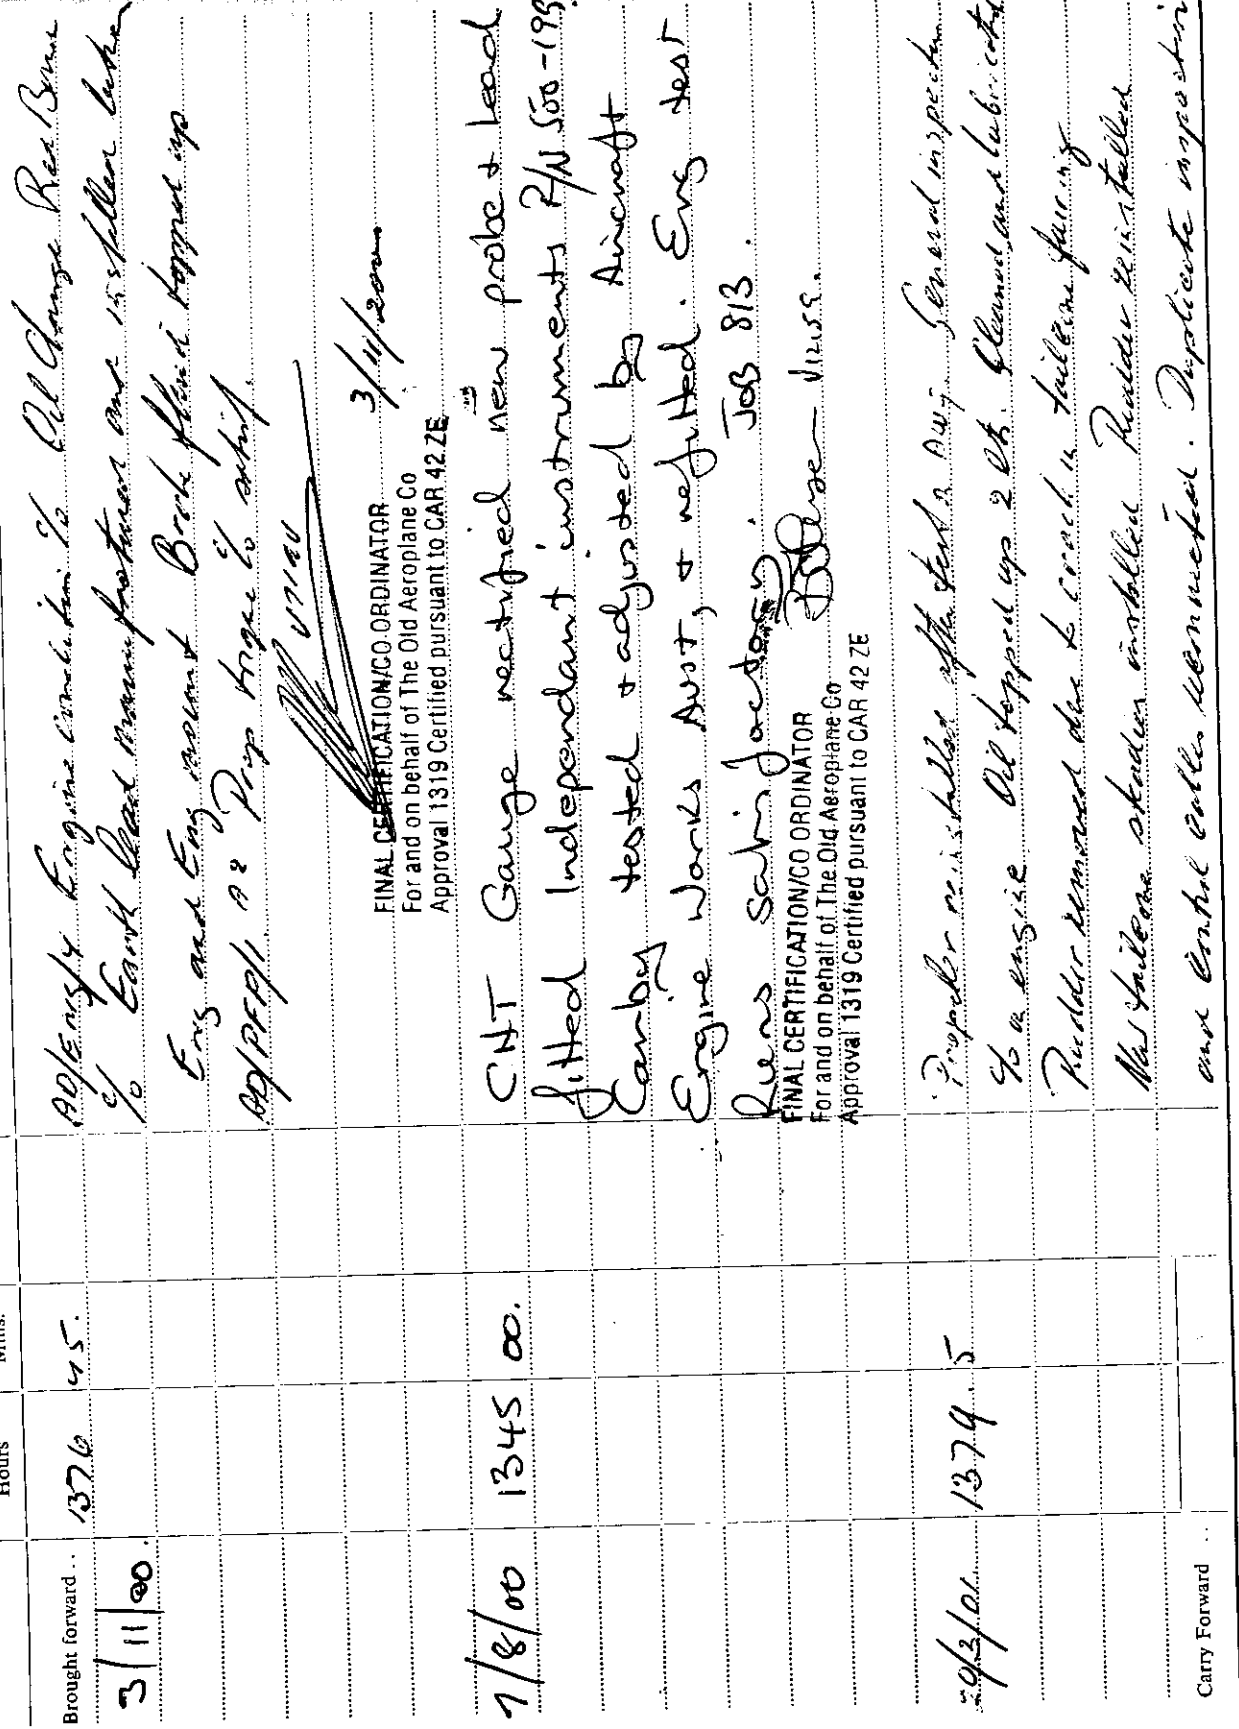 Hours Mins.
Brought forward .. 1376 45. AD/ENG/4 Engine c/o Oil Change
3/11/00. c/o Earth lead and
Eng and Eng mount Brake fluid topped up
AD/PFP/1 Prop c/o
3/11/2000
FINAL CERTIFICATION/CO ORDINATOR
For and on behalf of The Old Aeroplane Co
Approval 1319 Certified pursuant to CAR 42 ZE
1/8/00 1345 00. CHT Gauge rectified new probe & lead
fitted Independant instruments P/N 500-199
tested & adjusted by Aircraft
Engine Works Aust, & refitted. Eng test
Runs Satisfactory. JOB 813.
FINAL CERTIFICATION/CO ORDINATOR
For and on behalf of The Old Aeroplane Co
Approval 1319 Certified pursuant to CAR 42 ZE
1379.5 Propeller after General inspection
c/o on engine Oil topped up 2 Lt. Cleaned and lubricated
Rudder removed due to crack in tailcone fairing
New tailcone installed Rudder reinstalled
and control cables reconnected. Duplicate inspection
Carry Forward ..